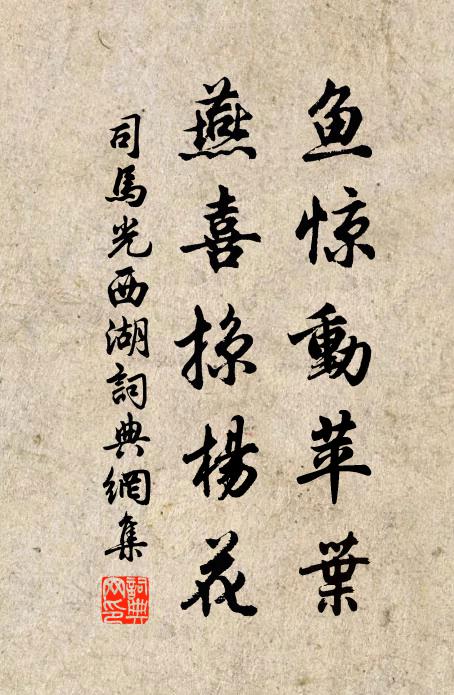 鱼惊動苹葉
燕喜掠楊花
司馬光西湖詞典網集
詞典網印